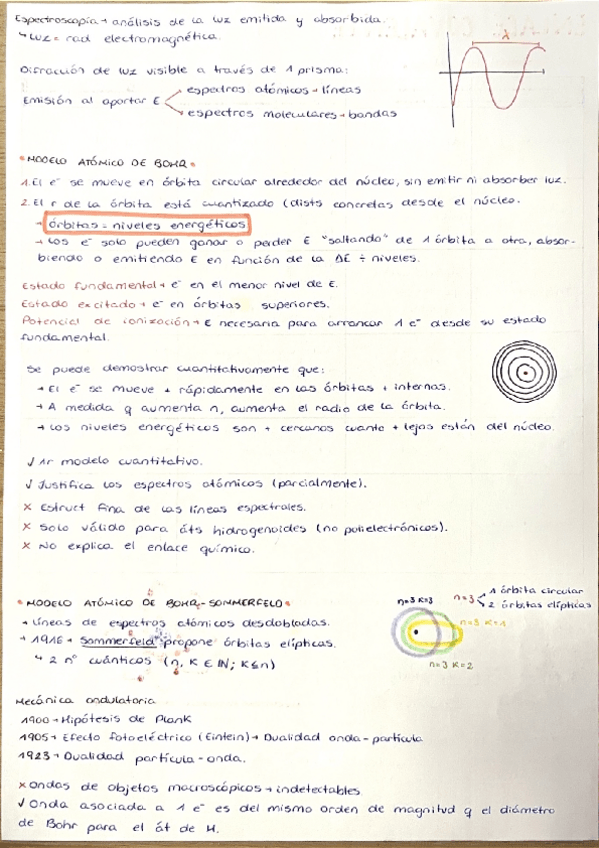 Espectroscopia → análisis de la luz emitida y absorbida.
↳ luz = rad electromagnética.
λ
Difracción de luz visible a través de 1 prisma:
Emisión al aportar E
espectros atómicos → líneas
espectros moleculares → bandas
• MODELO ATÓMICO DE BOHR •
1. El e⁻ se mueve en órbita circular alrededor del núcleo, sin emitir ni absorber luz.
2. El r de la órbita está cuantizado (dists concretas desde el núcleo.
→ órbitas = niveles energéticos
→ Los e⁻ solo pueden ganar o perder E "saltando" de 1 órbita a otra, absor-
biendo o emitiendo E en función de la ΔE ÷ niveles.
Estado fundamental → e⁻ en el menor nivel de E.
Estado excitado → e⁻ en órbitas superiores.
Potencial de ionización → E necesaria para arrancar 1 e⁻ desde su estado
fundamental.
Se puede demostrar cuantitativamente que:
→ El e⁻ se mueve + rápidamente en las órbitas + internas.
→ A medida q aumenta n, aumenta el radio de la órbita.
→ Los niveles energéticos son + cercanos cuanto + lejos están del núcleo.
✓ 1r modelo cuantitativo.
✓ Justifica los espectros atómicos (parcialmente).
✗ Estruct fina de las líneas espectrales.
✗ Solo válido para áts hidrogenoides (no polielectrónicos).
✗ No explica el enlace químico.
• MODELO ATÓMICO DE BOHR-SOMMERFELD •
→ Líneas de espectros atómicos desdobladas.
→ 1916 → Sommerfeld propone órbitas elípticas.
↳ 2 nº cuánticos (n, K ∈ ℕ; K≤n)
n=3 K=3
n=3
1 órbita circular
2 órbitas elípticas
n=3 K=1
n=3 K=2
Mecánica ondulatoria
1900 → Hipótesis de Plank
1905 → Efecto fotoeléctrico (Eintein) → Dualidad onda-partícula
1923 → Dualidad partícula-onda.
✗ Ondas de objetos macroscópicos → indetectables.
✓ Onda asociada a 1 e⁻ es del mismo orden de magnitud q el diámetro
de Bohr para el át de H.